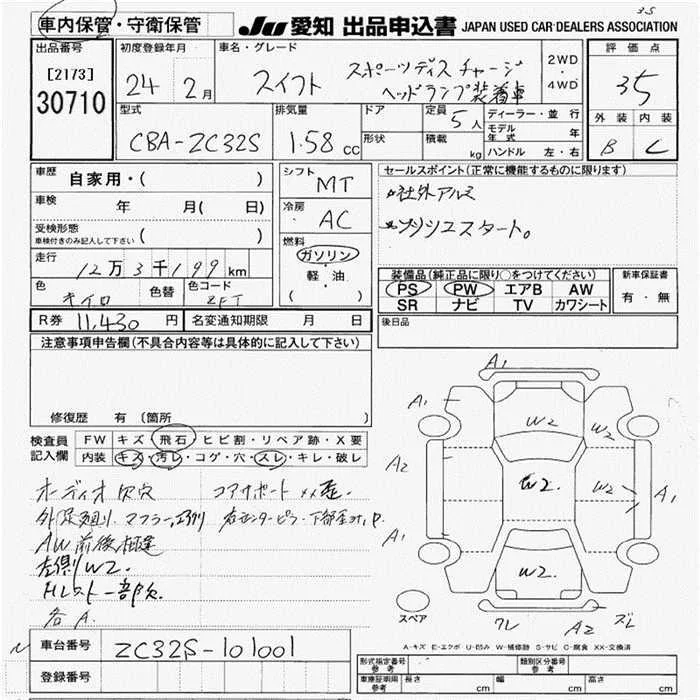 35
車内保管・守衛保管
JU 愛知 出品申込書 JAPAN USED CAR DEALERS ASSOCIATION
出品番号 初度登録年月 車名・グレード 評価点
[2173] 30710
24 2月
スイフト スポーツディスチャージ
ヘッドランプ装着車
2WD・4WD
35
型式 排気量 ドア 定員 5人 ディーラー・並行 外装 内装
CBA-ZC32S 1.58cc
形状 積載 kg
モデル年式 年
ハンドル 左・右
B C
車歴 自家用・( )
シフト MT
セールスポイント(正常に機能するものに限ります)
社外アルミ
プッシュスタート。
車検 年 月( 日)
冷房 AC
受検形態 車検付きのみ記入して下さい ( )
燃料 ガソリン・軽・油 ( )
走行 12万3千199km
装備品(純正品に限り○をつけてください) 新車保証書
PS PW エアB AW 有・無
SR ナビ TV カワシート
色 キイロ 色替 色コード ZFT
R券 11,430円 名変通知期限 月 日
後日品
注意事項申告欄(不具合内容等は具体的に記入して下さい)
修復歴 有 (箇所
検査員記入欄
FW キズ・飛石・ヒビ割・リペア跡・X要
内装 キズ・汚レ・コゲ・穴・スレ・キレ・破レ
オーディオ欠穴 コアサポート XX歪.
外足廻り、マフラー
AW前後相違
左側W2.
一部欠.
各A.
A1
A1 W2 W2
A2 W2. W2 A1
A1 W2.
スペア
A2 ズレ
A-キズ E-エクボ U-凹み W-補修跡 S-サビ C-腐食 XX-交換済
車台番号 ZC32S-101001
登録番号
形式指定番号 参考 類別区分番号 参考
車庫証明用 参考 長さ cm 幅 cm 高さ cm